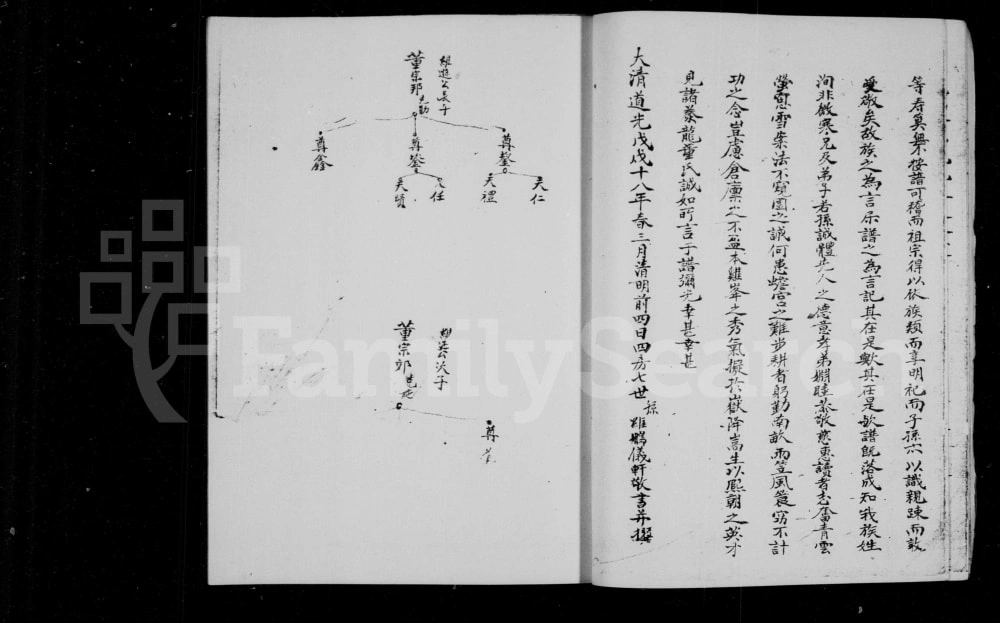 等寿奠無不按譜可稽而祖宗得以依族類而享明祀而子孫亦以識親疎而敦
愛敬矣故族之為言示譜之為言記其在是歟其在是歟譜既落成知我族姓
洵非微寒兄及弟子若孫誠體先人之德意孝弟婣睦恭敬慈惠讀者志奮青雲
螢窓雪案法不窺園之誠何患蟾宮之難步耕者躬勤南畝雨笠風簑窃不計
功之念豈慮倉廩之不盈本雞峯之秀氣擬於嶽降嵩生以熙朝之英才
見諸豢龍董氏誠如所言于譜彌光幸甚幸甚
大清道光戊戌十八年春三月清明前四日四房七世 雄鵾儀軒敬書并撰
維進公長子
董宗邦
尊鏊
天仁
天禮
尊鋆
天任
天贊
尊鑫
維進公次子
董宗郢
尊
FamilySearch